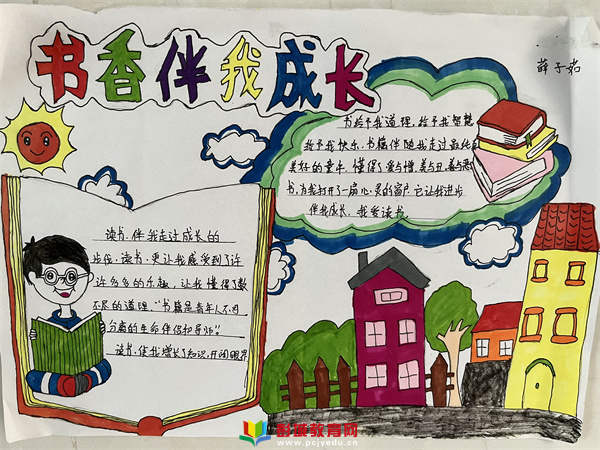 书香伴我成长
薛子茹
书给予我道理,给予我智慧
给予我快乐。书籍伴随我走过最纯真
美好的童年,懂得了爱与憎,美与丑,善与恶
书,为我打开了一扇心灵的窗户,它让我进步
伴我成长,我爱读书。
读书,伴我走过成长的
步伐,读书,更让我感受到了许
许多多的乐趣,让我懂得了数
不尽的道理,"书籍是青年人不可
分离的生命伴侣和导师"
读书,使我增长了知识,开阔眼界
彭骥教育网
www.pcjyedu.cn